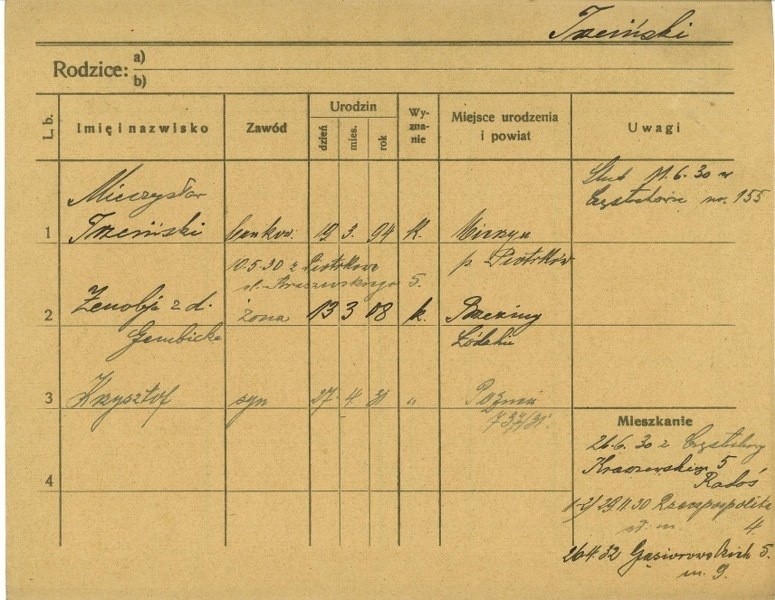 Trzciński
Rodzice: a)
b)
L. b. Imię i nazwisko Zawód Urodzin dzień mies. rok Wy-zna-nie Miejsce urodzenia i powiat Uwagi
Ślub 11.6.30 w
Częstochowie nr. 155
Mieczysław
1 Trzciński bankow. 19 3. 94 k.
10.5.30 z Piotrkowa p. Piotrków
ul. Kraszewskiego 5.
2 Zenobja z d. żona 13 3 08 k. Brzeziny
Gembicka Łódzkie
3 Krzysztof syn 27 4. 31 " Poznań
737/31.
4
Mieszkanie
26.6.30 z Częstochowy
Kraszewskiego 5
29.11.30 Rzeczypospolita
4.
26.4.32 Gąsiorowskich 5.
m. 9.